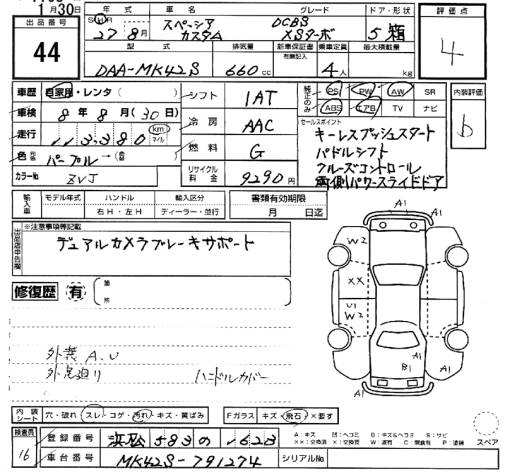 月30日
出品番号 44
年式 車名 グレード ドア・形状 評価点
S H R 27年8月 スペーシアカスタム DCBS XSターボ 5 箱 4
型式 排気量 新車保証書 有無記入 乗車定員 最大積載量
DAA-MK42S 660cc 4人 kg
車歴 自家用・レンタ( )
シフト 1AT
純正のみ PS PW AW SR
ABS エアB TV ナビ
内装評価 b
車検 8年8月(30日)
走行 113,380 km マイル
冷房 AAC
セールスポイント
キーレスプッシュスタート
パドルシフト
クルーズコントロール
両側パワースライドドア
色 パープル→( )
燃料 G
カラーNo ZVJ
リサイクル料金 9290円
輸入車 モデル年式 ハンドル 輸入区分 書類有効期限
右H・左H ディーラー・並行 月 日迄
※注意事項等記載
デュアルカメラブレーキサポート
修復歴 有 箇所
外装 A.U
ハンドルカバー
A1 A1
W2
XX
U1
W2
A1 A1
B1
A1
内装シート 穴・破れ スレ・コゲ・汚れ・キズ・黄ばみ
Fガラス キズ・飛石・×要す
スペア
検査員 16
登録番号 浜松 583 の 1623
車台番号 MK42S-791274
シリアルNo
A:キズ U:ヘコミ B:キズ&ヘコミ S:サビ
××:交換済 X:要交換 W:波有 C:腐食有 P:塗装